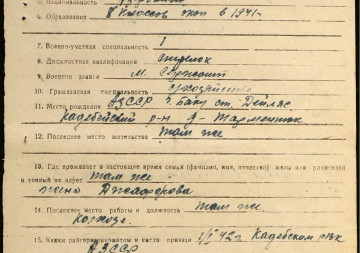 6. Образование 8 классов окон в 1941г
7. Военно-учетная специальность 1
8. Должностная квалификация стрелок
9. Военное звание м. сержант
10. Гражданская специальность
11. Место рождения АзССР г. Баку ст.
Кадебейский р-н д-
12. Последнее место жительства там же
13. Где проживает в настоящее время семья (фамилия, имя, отчество) жены или родителей
и точный их адрес там же
жена Джафарова
14. Последнее место работы и должность там же
Колхоз
15. Каким райгорвоенкоматом и когда призван 1/I 42г Кадебским рвк
АзССР